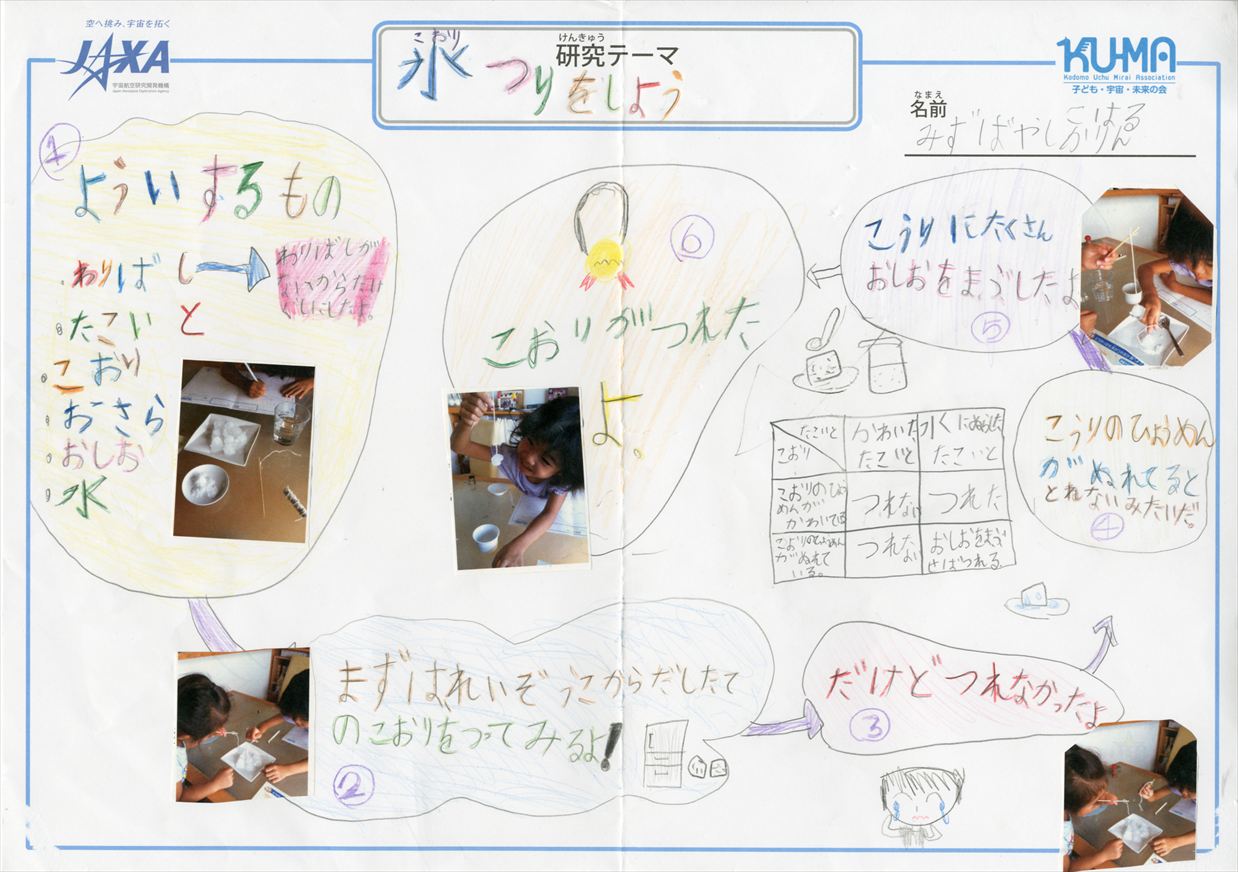 空へ挑み、宇宙を拓く
JAXA
宇宙航空研究開発機構
Japan Aerospace Exploration Agency
けんきゅう
研究テーマ
こおり
氷つりをしよう
KU-MA
Kodomo Uchu Mirai Association
子ども・宇宙・未来の会
なまえ
名前
みずばやし こはる
かりん
1
よういするもの
・わりばし
・たこいと
・こおり
・おさら
・おしお
・水
わりばしが
2
まずは、れいぞうこからだしたて
のこおりをつってみるよ!
3
だけどつれなかったよ
4
こうりのひょうめん
がぬれてると
とれないみたいだ。
5
こうりにたくさん
おしおをまぶしたよ
6
こおりがつれた
よ。
たこいと
こおり
かわいた
たこいと
水にぬらした
たこいと
こおりのひょう
めんが
かわいてる
つれない
つれた
こおりのひょうめん
がぬれて
いる。
つれない
おしおをまぶ
せばつれる。